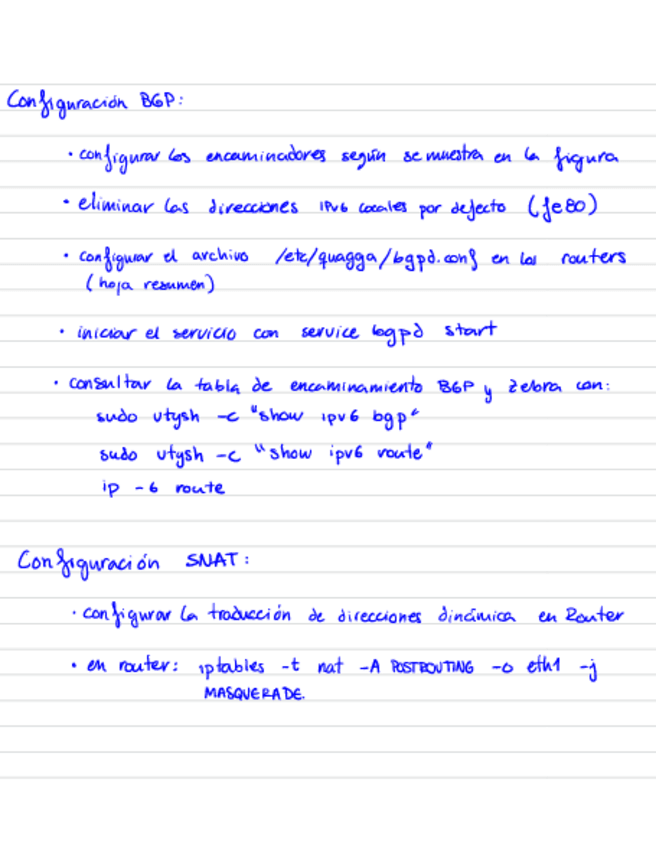 Configuración BGP:
· configurar los encaminadores según se muestra en la figura
· eliminar las direcciones IPv6 locales por defecto (fe80)
· configurar el archivo /etc/quagga/bgpd.conf en los routers
(hoja resumen)
· iniciar el servicio con service bgpd start
· consultar la tabla de encaminamiento BGP y Zebra con:
sudo vtysh -c "show ipv6 bgp"
sudo vtysh -c "show ipv6 route"
ip -6 route
Configuración SNAT:
· configurar la traducción de direcciones dinámica en Router
· en router: iptables -t nat -A POSTROUTING -o eth1 -j
MASQUERADE.